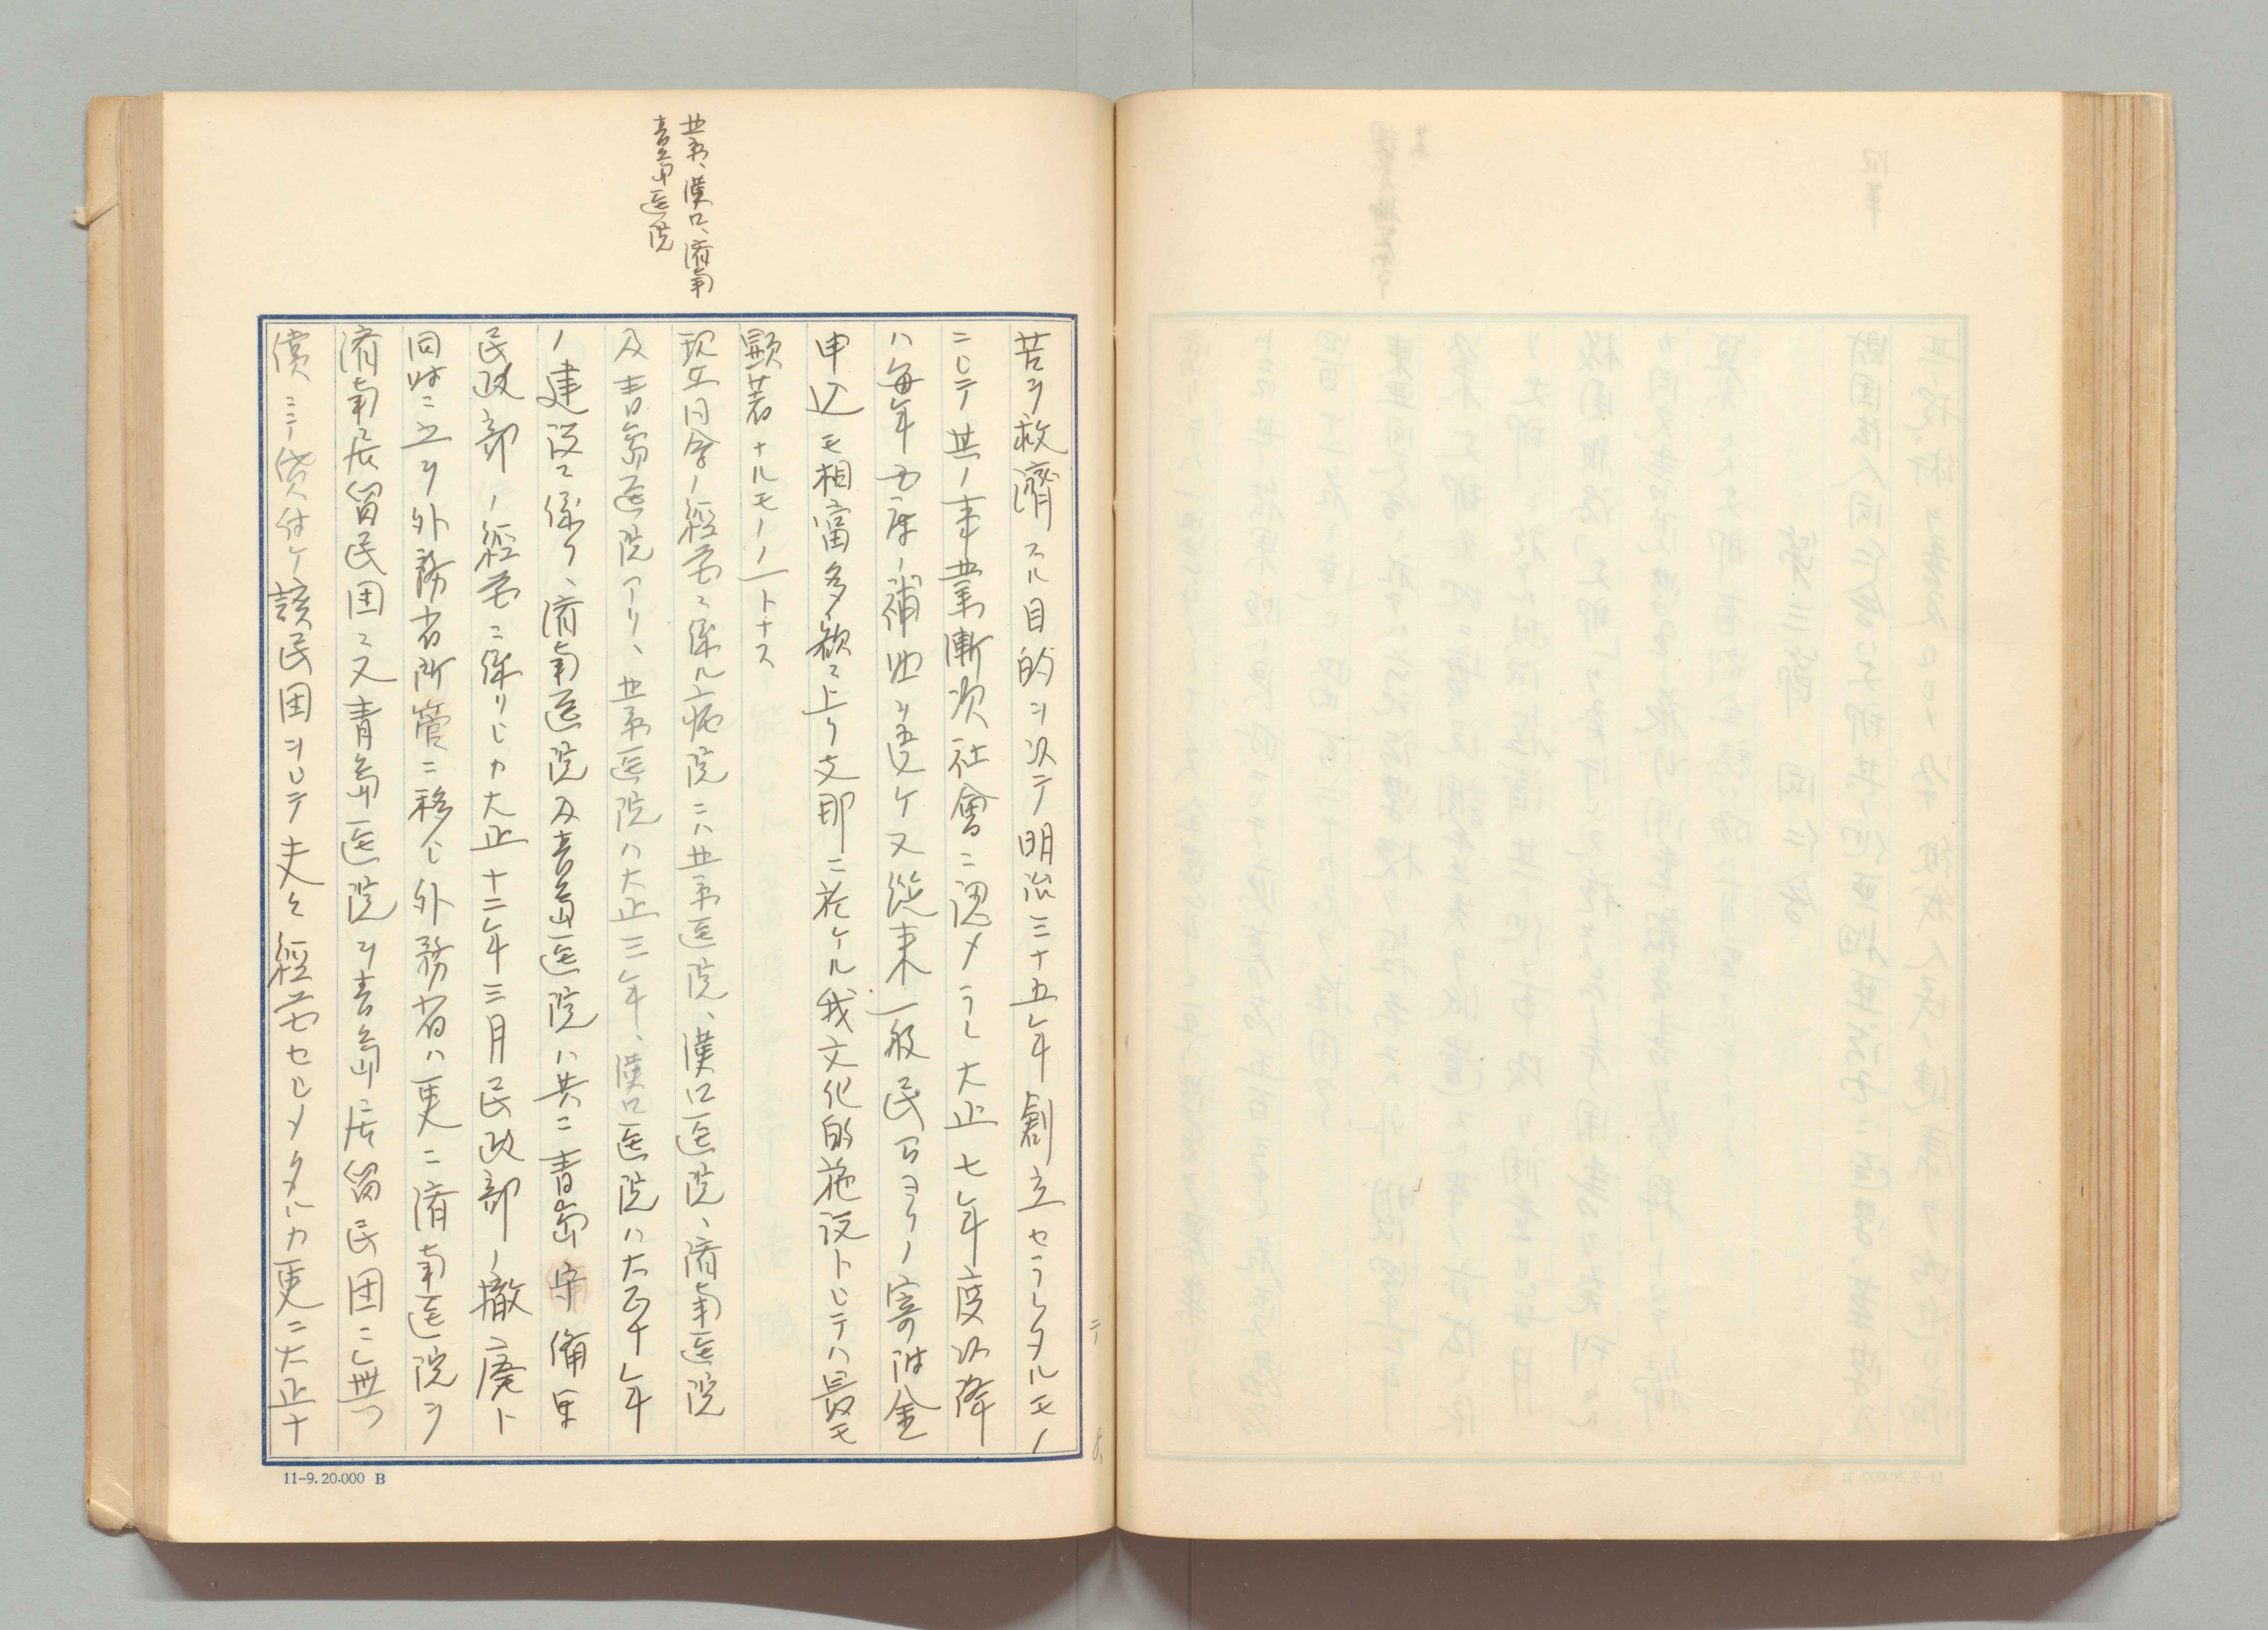 北京、漢口、済南
青島医院
苦ヲ救濟スル目的ヲ以テ明治三十五年創立セラレタルモノ
ニシテ其ノ事業漸次社會ニ認メラレ大正七年度以降
ハ毎年市庫ノ補助ヲ受ケ又従来一般民間ヨリノ寄附金
申込モ相当多額ニ上リ支那ニ於ケル我文化的施設トシテハ最モ
顕著ナルモノノ一トナス
現在同会ノ經営ニ係ル病院ニハ北京医院、漢口医院、済南医院
及青島医院アリ、北京医院ハ大正三年、漢口医院ハ大正十年
ノ建設ニ係リ、済南医院及青島医院ハ共ニ青島守備軍
民政部ノ経営ニ係リシカ大正十二年三月民政部ノ撤廃ト
同時ニ之ヲ外務省所管ニ移シ外務省ハ更ニ済南医院ヲ
済南居留民団ニ又青島医院ヲ青島居留民団ニ無
償ニテ貸付ケ該民団ヲシテ夫々經営セシメタルカ更ニ大正十
11-9. 20.000 B